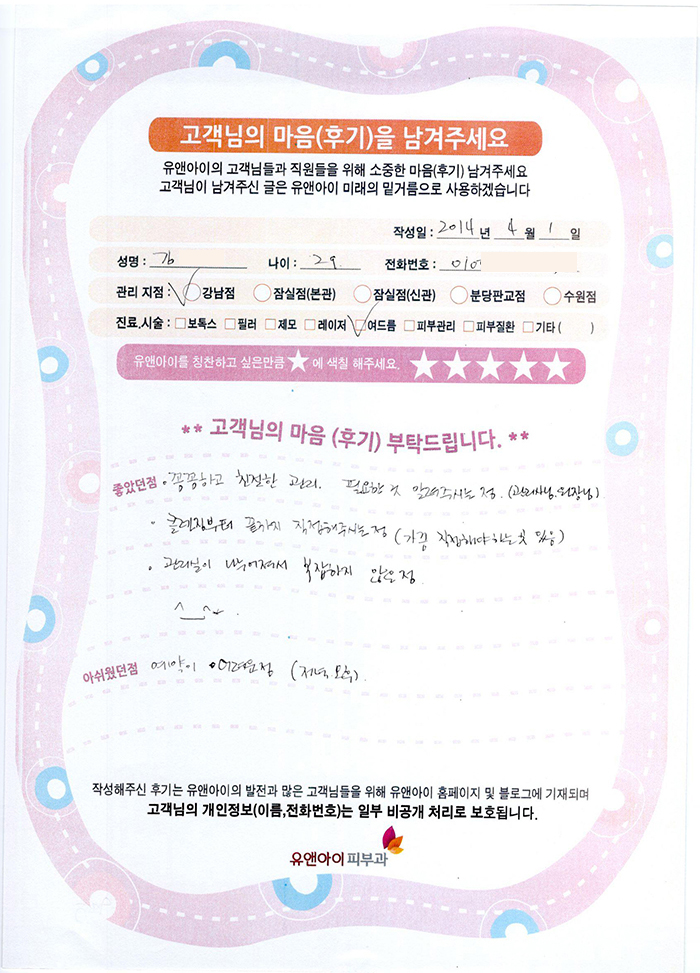 고객님의 마음(후기)을 남겨주세요
유앤아이의 고객님들과 직원들을 위해 소중한 마음(후기) 남겨주세요
고객님이 남겨주신 글은 유앤아이 미래의 밑거름으로 사용하겠습니다
작성일 : 2014 년 4 월 1 일
성명 : 김 나이 : 29. 전화번호 : 010
관리 지점 : 강남점 잠실점(본관) 잠실점(신관) 분당판교점 수원점
진료,시술 : 보톡스 필러 제모 레이저 여드름 피부관리 피부질환 기타 ( )
유앤아이를 칭찬하고 싶은만큼 ★에 색칠 해주세요. ★★★★★
** 고객님의 마음 (후기) 부탁드립니다. **
좋았던점 · 꼼꼼하고 친절한 관리. 필요한 것 알려주시는 점. (관리사님, 원장님).
· 클렌징부터 끝까지 직접해주시는점 (가끔 직접해야하는 곳 있음)
· 관리실이 나누어져서 복잡하지 않은점.
^__^.
아쉬웠던점 예약이 어려운점 (저녁, 오후).
작성해주신 후기는 유앤아이의 발전과 많은 고객님들을 위해 유앤아이 홈페이지 및 블로그에 기재되며
고객님의 개인정보(이름,전화번호)는 일부 비공개 처리로 보호됩니다.
유앤아이피부과